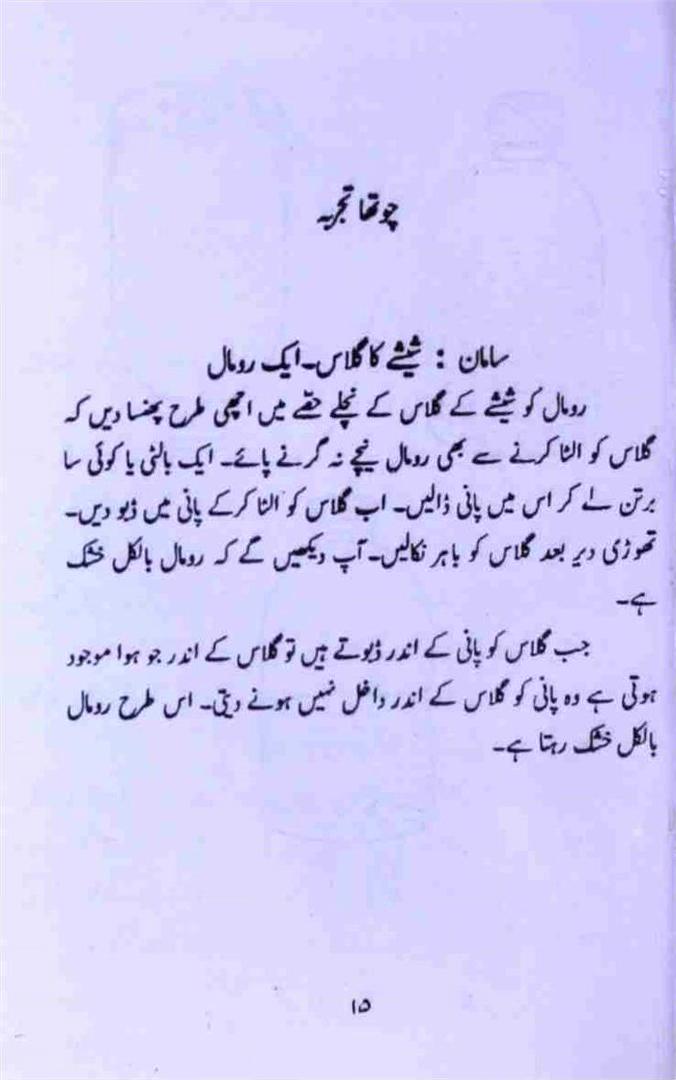 چوتھا تجربہ
سامان : شیشے کا گلاس۔ ایک رومال
رومال کو شیشے کے گلاس کے نچلے حصّے میں اچھی طرح پھنسا دیں کہ
گلاس کو الٹا کرنے سے بھی رومال نیچے نہ گرنے پائے۔ ایک بالٹی یا کوئی سا
برتن لے کر اس میں پانی ڈالیں۔ اب گلاس کو الٹا کرکے پانی میں ڈبو دیں۔
تھوڑی دیر بعد گلاس کو باہر نکالیں۔ آپ دیکھیں گے کہ رومال بالکل خشک
ہے۔
جب گلاس کو پانی کے اندر ڈبوتے ہیں تو گلاس کے اندر جو ہوا موجود
ہوتی ہے وہ پانی کو گلاس کے اندر داخل نہیں ہونے دیتی۔ اس طرح رومال
بالکل خشک رہتا ہے۔
۱۵